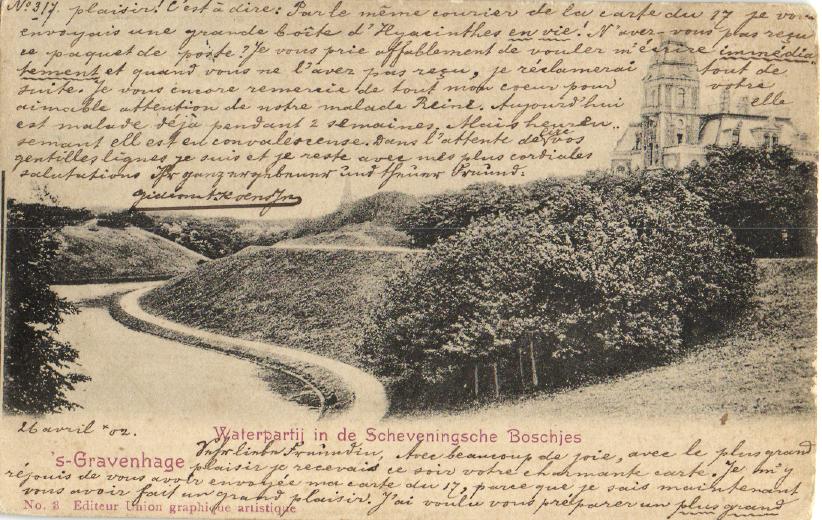 No 317. plaisir! C'est à dire: Par le même courier de la carte du 17 je vous
envoyais une grande boîte d'Hyacinthes en vie. N'avez-vous pas reçu
ce paquet de poste? Je vous prie affablement de vouler m'écrire immédia-
tement et quand vous ne l'avez pas reçu, je réclamerai tout de
suite. Je vous encore remercie de tout mon coeur pour votre
aimable attention de notre malade Reine. Aujourd'hui elle
est malade déjà pendant 2 semaines. Mais heureu-
semant ell est en convalescense. Dans l'attente de vos
gentilles lignes je suis et je reste avec mes plus cordiales
salutations Ihr ganz ergebener und treuer Freund.
26 avril '02.
Waterpartij in de Scheveningsche Boschjes
's-Gravenhage
Sehr liebe Freundin, Avec beaucoup de joie, avec le plus grand
plaisir je recevais ce soir votre charmante carte. Je m'y
réjouis de vous avoir envoyée ma carte du 17, parce que je sais maintenant
vous avoir fait un grand plaisir. J'ai voulu vous préparer un plus grand
No. 3 Editeur Union graphique artistique